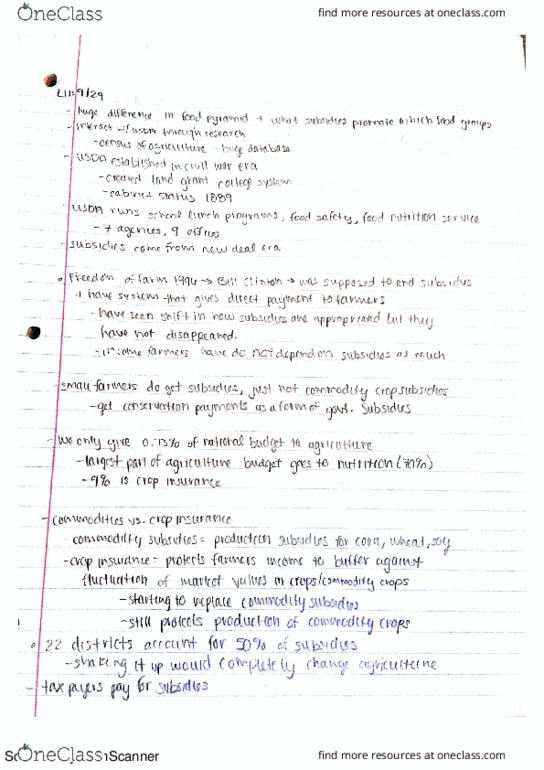 OneClass
find more resources at oneclass.com
L11: 9/29
- huge difference in food pyramid + what subsidies promote which food groups
- interact w/ USDA through research
- census of agriculture - huge database
- USDA established in civil war era
- created land grant college system
- cabinet status 1889
- USDA runs school lunch programs, food safety, food nutrition service
- 7 agencies, 9 offices
- subsidies come from new deal era
Freedom of farm 1996 → Bill Clinton → was supposed to end subsidies
+ have system that gives direct payment to farmers
- have seen shift in how subsidies are appropriated but they
have not disappeared.
- income farmers have do not depend on subsidies as much
- small farmers do get subsidies, just not commodity crop subsidies
- get conservation payments as a form of govt. subsidies
- we only give 0.75% of national budget to agriculture
- largest part of agriculture budget goes to nutrition (70%)
- 9% is crop insurance
- commodities vs. crop insurance
- commodity subsidies = production subsidies for corn, wheat, soy
- crop insurance = protects farmers income to buffer against
fluctuation of market values in crops/commodity crops
- starting to replace commodity subsidies
- still protects production of commodity crops
22 districts account for 50% of subsidies
- shaking it up would completely change agriculture
- tax payers pay for subsidies
OneClass
Scanner
find more resources at oneclass.com